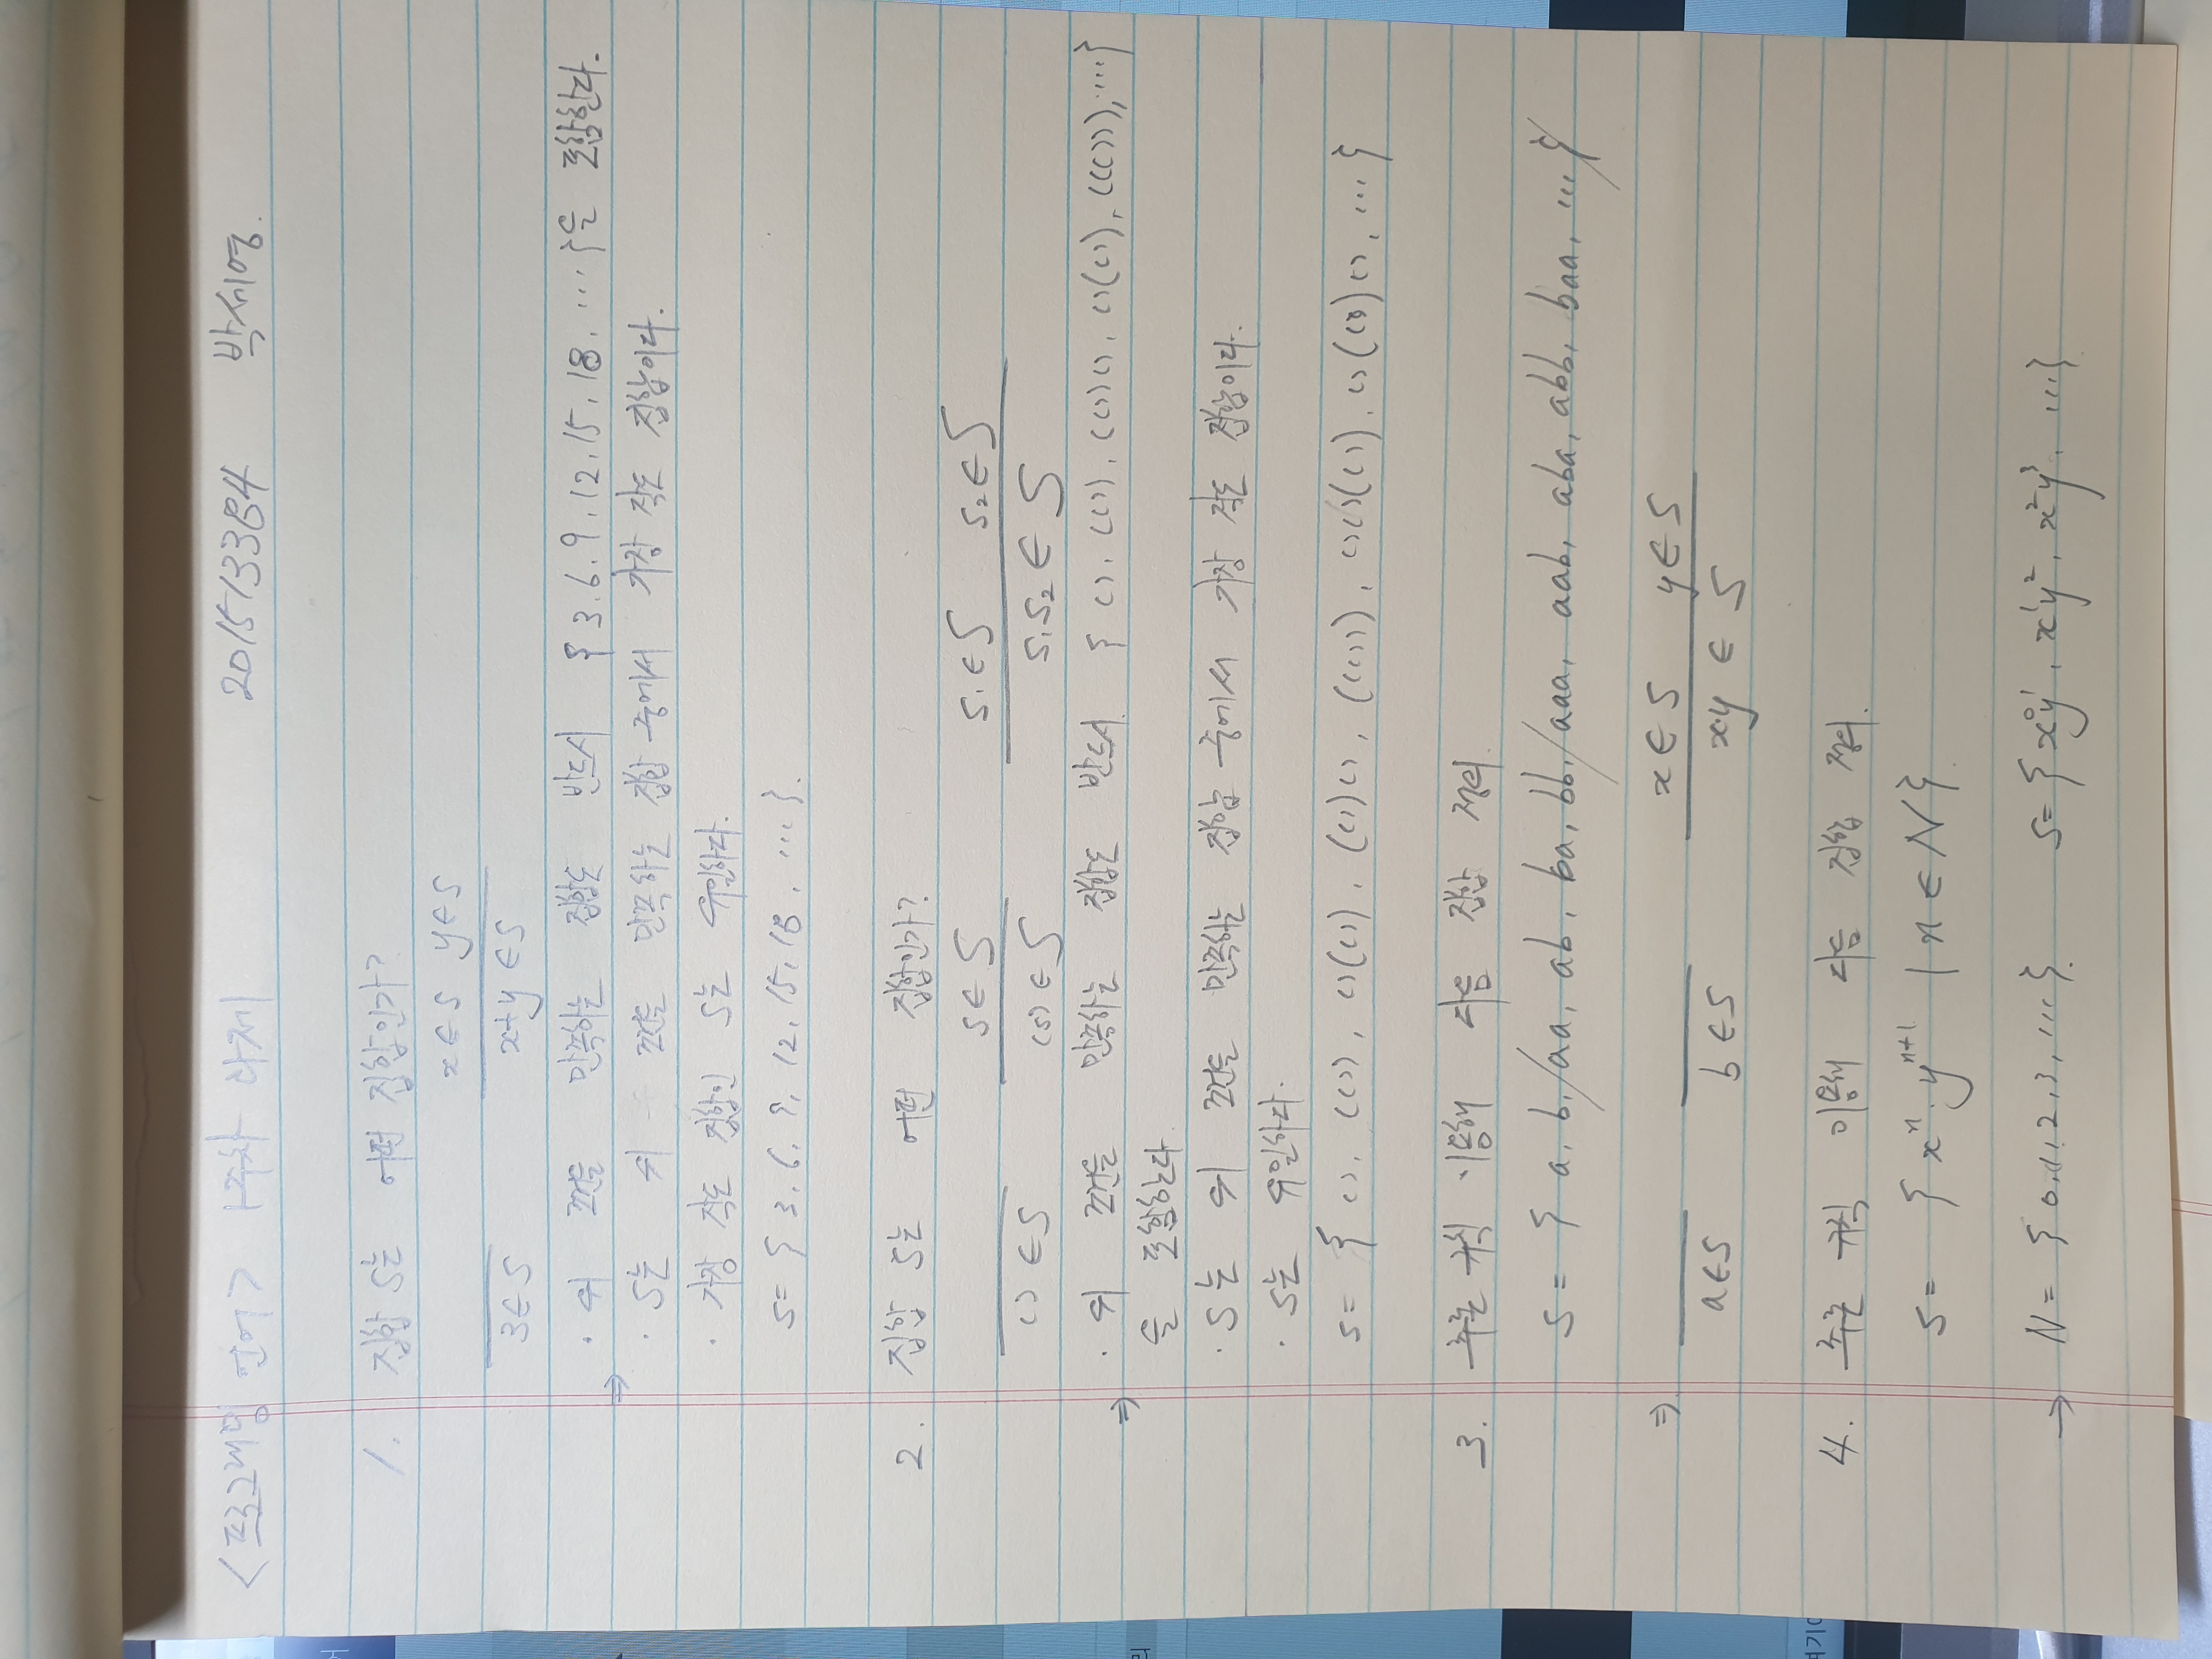 <프로그래밍 언어> 1주차 과제 2015133384 박세영.
1. 집합 S는 어떤 집합인가?
x∈S y∈S
3∈S x+y ∈S
· 위 조건을 만족하는 집합은 반드시 {3, 6, 9, 12, 15, 18, ...}을 포함한다.
⇒
· S는 위 조건을 만족하는 집합 중에서 가장 작은 집합이다.
· 가장 작은 집합인 S는 유일하다.
S= { 3, 6, 9, 12, 15, 18, ... }.
2. 집합 S는 어떤 집합인가?
s∈S s₁∈S s₂∈S
() ∈S (s)∈S s₁s₂∈ S
⇒ · 위 조건을 만족하는 집합은 반드시 { (), (()), (())(), ()(()), ((())), ...}
을 포함한다.
· S는 위 조건을 만족하는 집합 중에서 가장 작은 집합이다.
· S는 유일하다.
S= { (), (()), ()(()), (())(), ((())), ()()(()), ()(())(), ... }
3. 추론 규칙 이용해 다음 집합 정의.
S = { a, b, / aa, ab, ba, bb, / aaa, aab, aba, abb, baa, ... }
⇒ x∈S y∈S
a∈S b∈S x·y ∈ S
4. 추론 규칙 이용해 다음 집합 정의.
S= { xⁿ·yⁿ⁺¹ | n ∈ N}.
→ N= { 0, 1, 2, 3, ... }. S= { x⁰y¹, x¹y², x²y³, ... }
여기